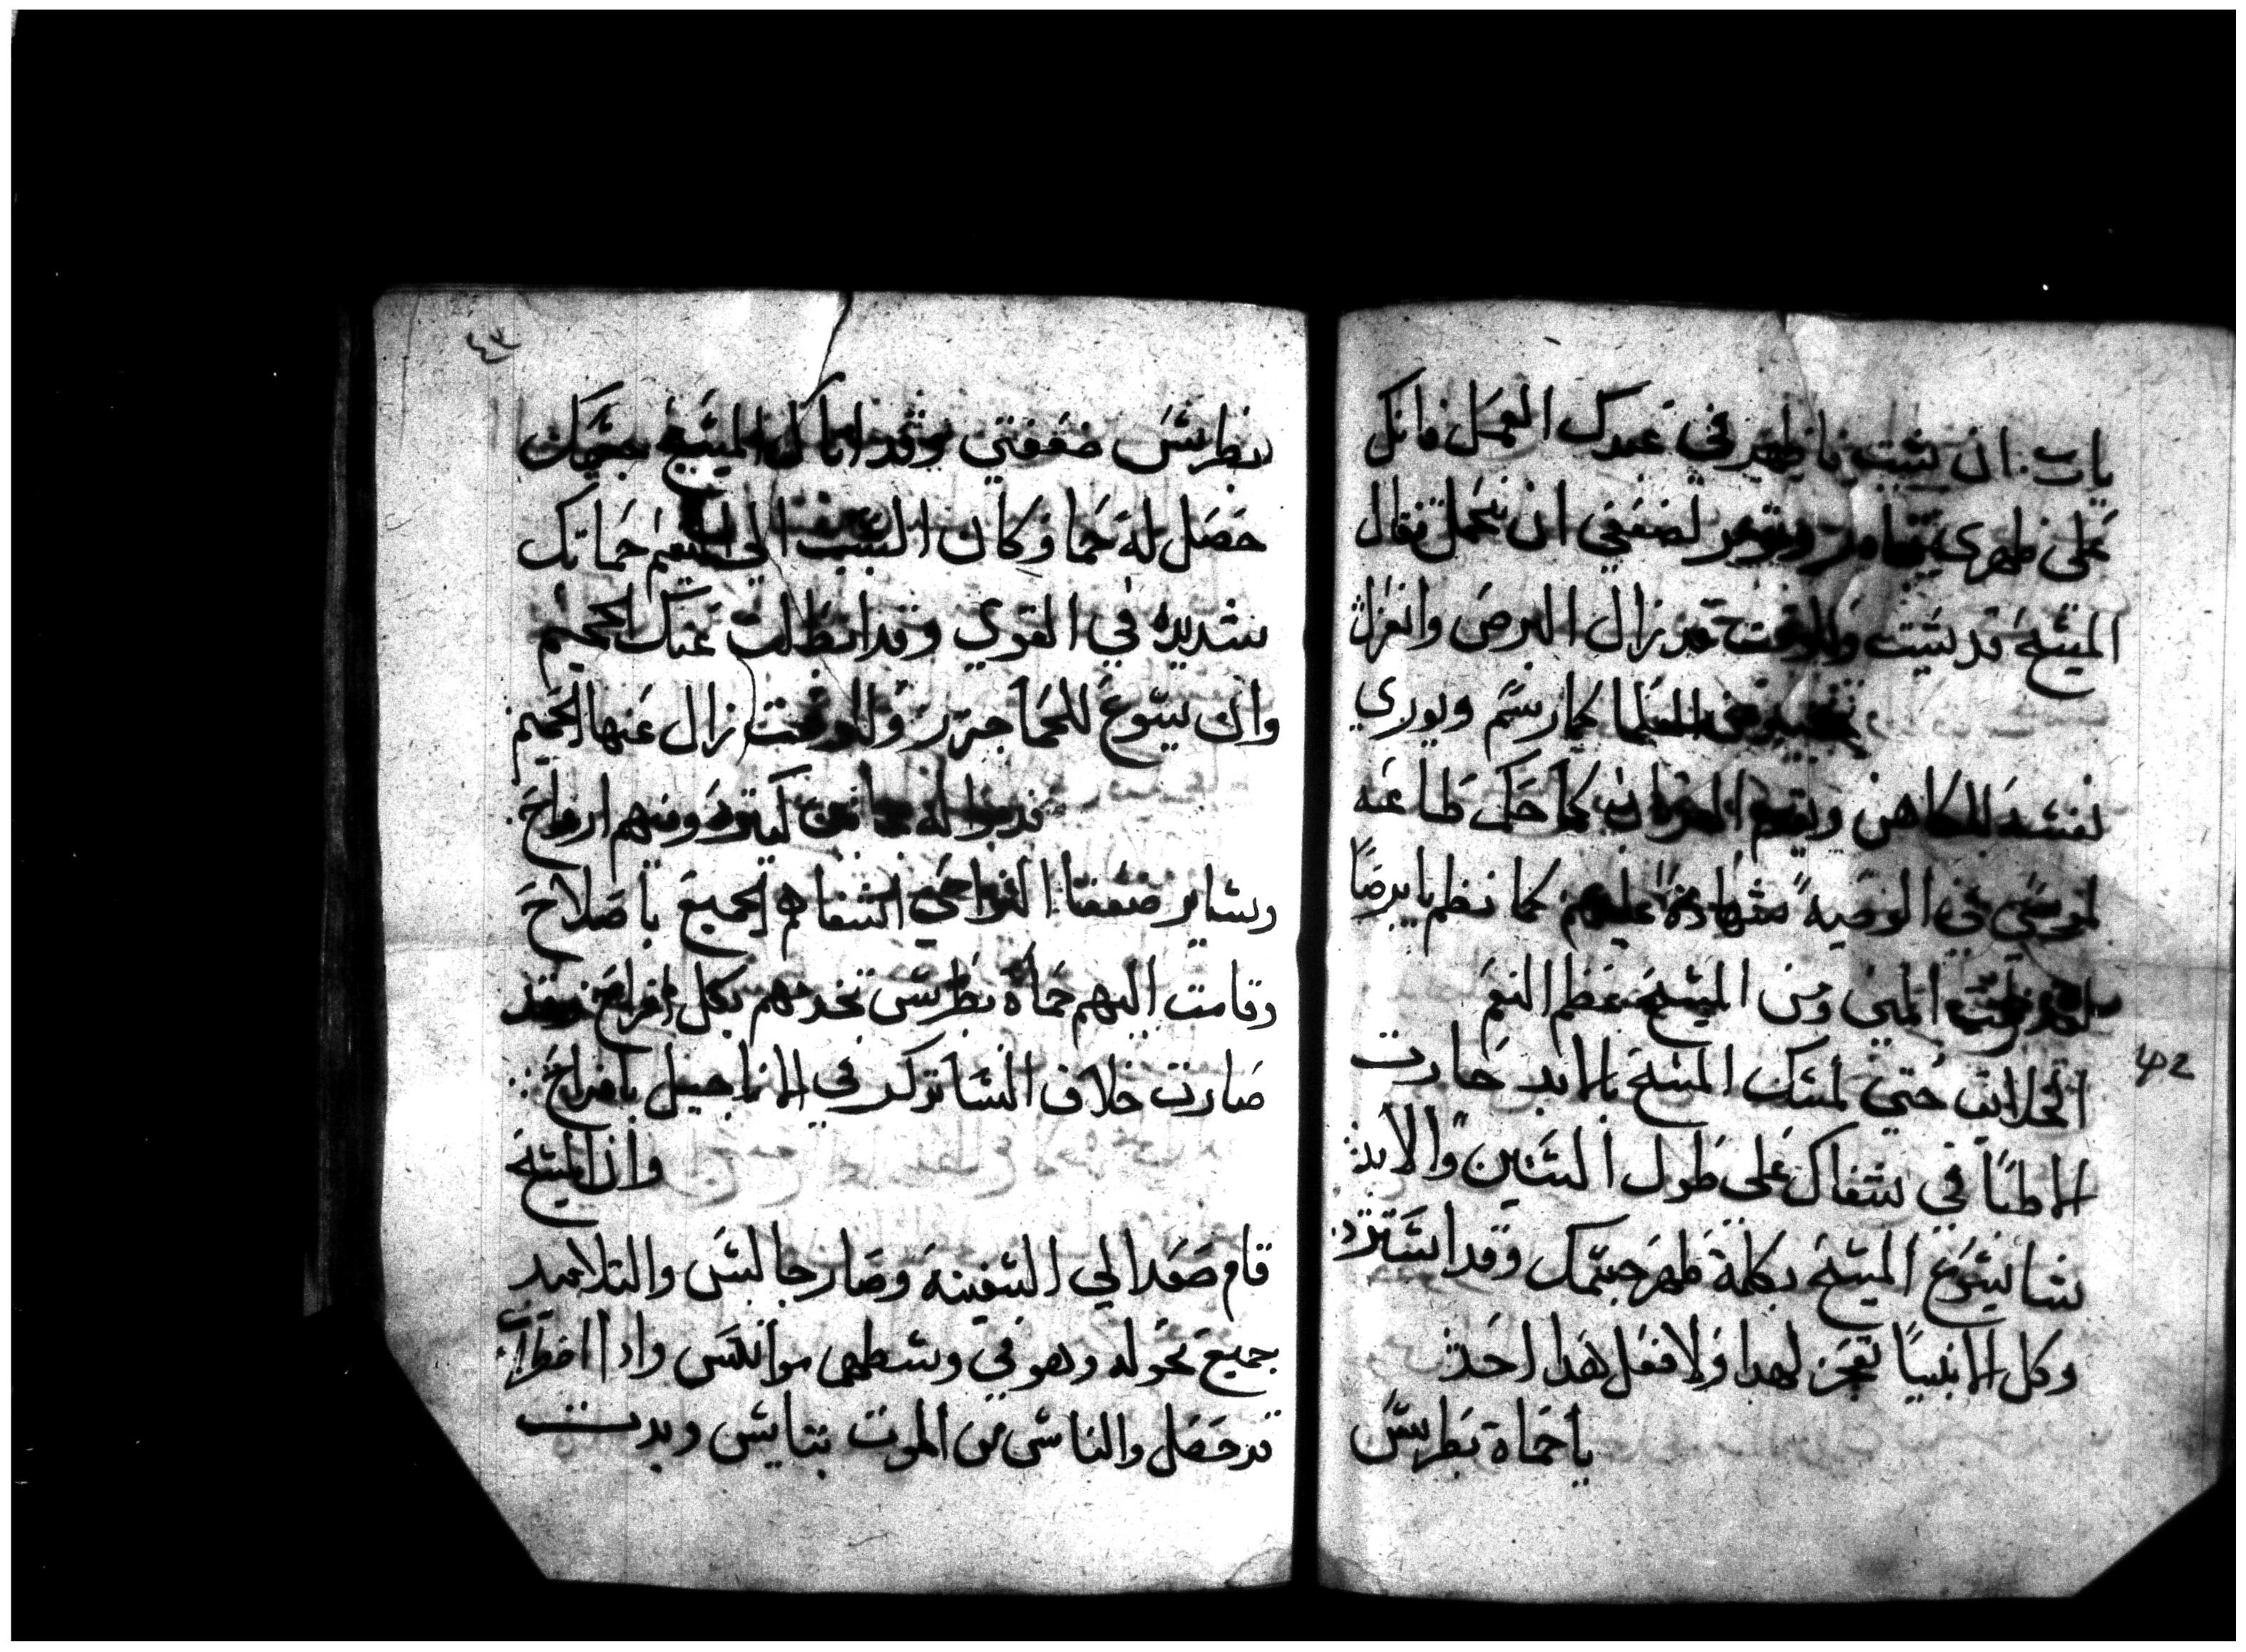 يارب ان شيت ناظهر في عبدك العمل فانكل
على ظهري لضعفي ان يحمل فقال
المسيح قد شيت وللوقت قد زال البرص وانعزل
كما رسم ويوري
نفسه للكاهن ويقدم القربان كما حكم طاعه
لموسي في الوصيه شهادة عليهم كما نظم يا برصا
المسيح عظم النعم
حتي لمسك المسيح بالابد حارت
الاطبا في شفاك على طول السنين والابد
شا يسوع المسيح بكلمة طهر جسمك وقد اشتد
وكل الانبيا تعجز لهدا ولا فعل هدا احد
يا حماة بطرس
٤٢
٤٣
بطرس ضعفتي وقد اتاكي المسيح بجسمك
حصل له حما وكان السبب الي حماتك
شديده في القوي وقد انطالت عنك الحميم
واك يسوع للحما جرر وللوقت زال عنها الحميم
قدموا له مجانين كتيره ومنهم ارواح
وساير ضعفا النواحي اشفاهم الجميع باصلاح
وقامت اليهم حماة بطرس تخدمهم بكل افراح
صارت خلاف النسا تركد في الاناجيل بافراح
وان المسيح
قام صعد الي السفينه وصار جالس والتلاميد
جميع حوله وهو في وسطهم موانس وادا اضطراب
قد حصل والناس من الموت بتايس وبدت